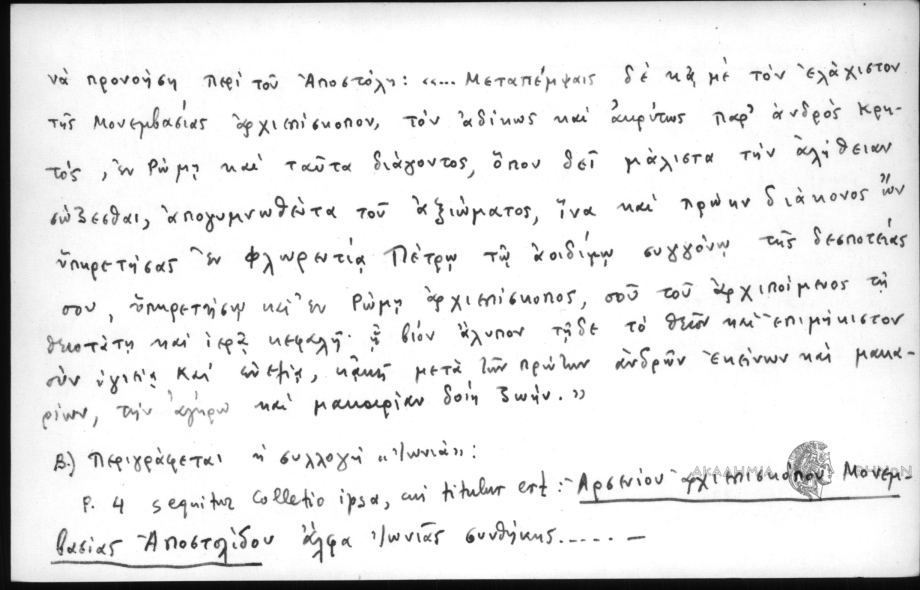 νὰ προνοήση περὶ τοῦ Ἀποστόλη: «... Μεταπέμψαις δέ κἀμέ τὸν ἐλάχιστον
τῆς Μονεμβασίας ἀρχιεπίσκοπον, τὸν ἀδίκως καὶ ἀκρίτως παρ' ἀνδρὸς Κρη-
τός, ἐν Ρώμῃ καὶ ταῦτα διάγοντος, ὅπου δεῖ μάλιστα τὴν ἀλήθειαν
σώζεσθαι, ἀπογυμνωθέντα τοῦ ἀξιώματος, ἵνα καὶ πρώην διάκονος ὢν
ὑπηρετήσας ἐν Φλωρεντίᾳ Πέτρῳ τῷ ἀοιδίμῳ συγγόνῳ τῆς δεσποτείας
σου, ὑπηρετήσῃ καὶ ἐν Ρώμῃ ἀρχιεπίσκοπος, σοῦ τοῦ ἀρχιποίμενος τῇ
θειοτάτῃ καὶ ἱερᾷ κεφαλῇ· ᾗ βίον ἄλυπον τῇδε τὸ θεῖον καὶ ἐπιμήκιστον
σὺν ὑγιείᾳ καὶ εὐεξίᾳ, κἀκεῖ μετὰ τῶν πρώτων ἀνδρῶν ἐκείνων καὶ μακα-
ρίων, τὴν ἀγήρω καὶ μακαρίαν δοίη ζωήν.»
Β.) Περιγράφεται ἡ συλλογή «Ἰωνιά»:
P. 4 sequitur colletio ipsa, cui titulus est: Ἀρσενίου ἀρχιεπισκόπου Μονεμ-
βασίας Ἀποστολίδου ἄλφα Ἰωνιᾶς συνθήκης..... —
ΑΚΑΔΗΜΙΑ ΑΘΗΝΩΝ